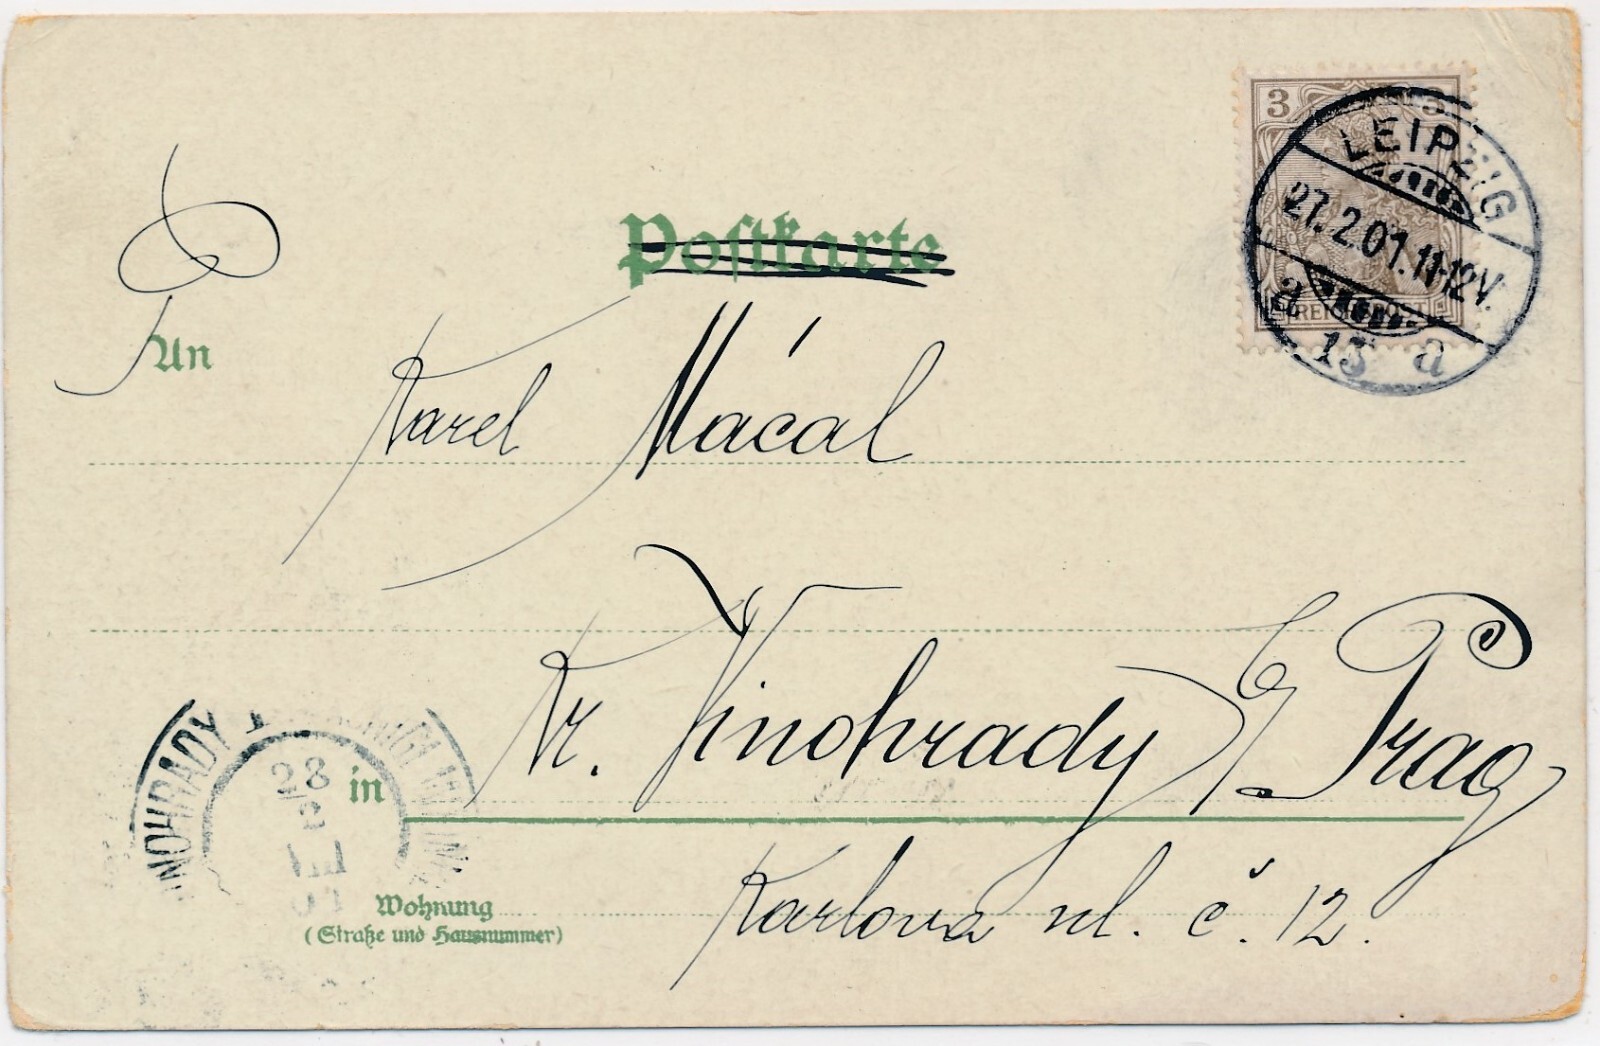 3
LEIPZIG
27.2.01.11-12V.
a
13 a
REICHSPOST
Postkarte
An
Karel Mácal
Kr. Vinohrady
Prag
in
28
2
VIII
Karlova ul. č. 12.
Wohnung
(Straße und Hausnummer)